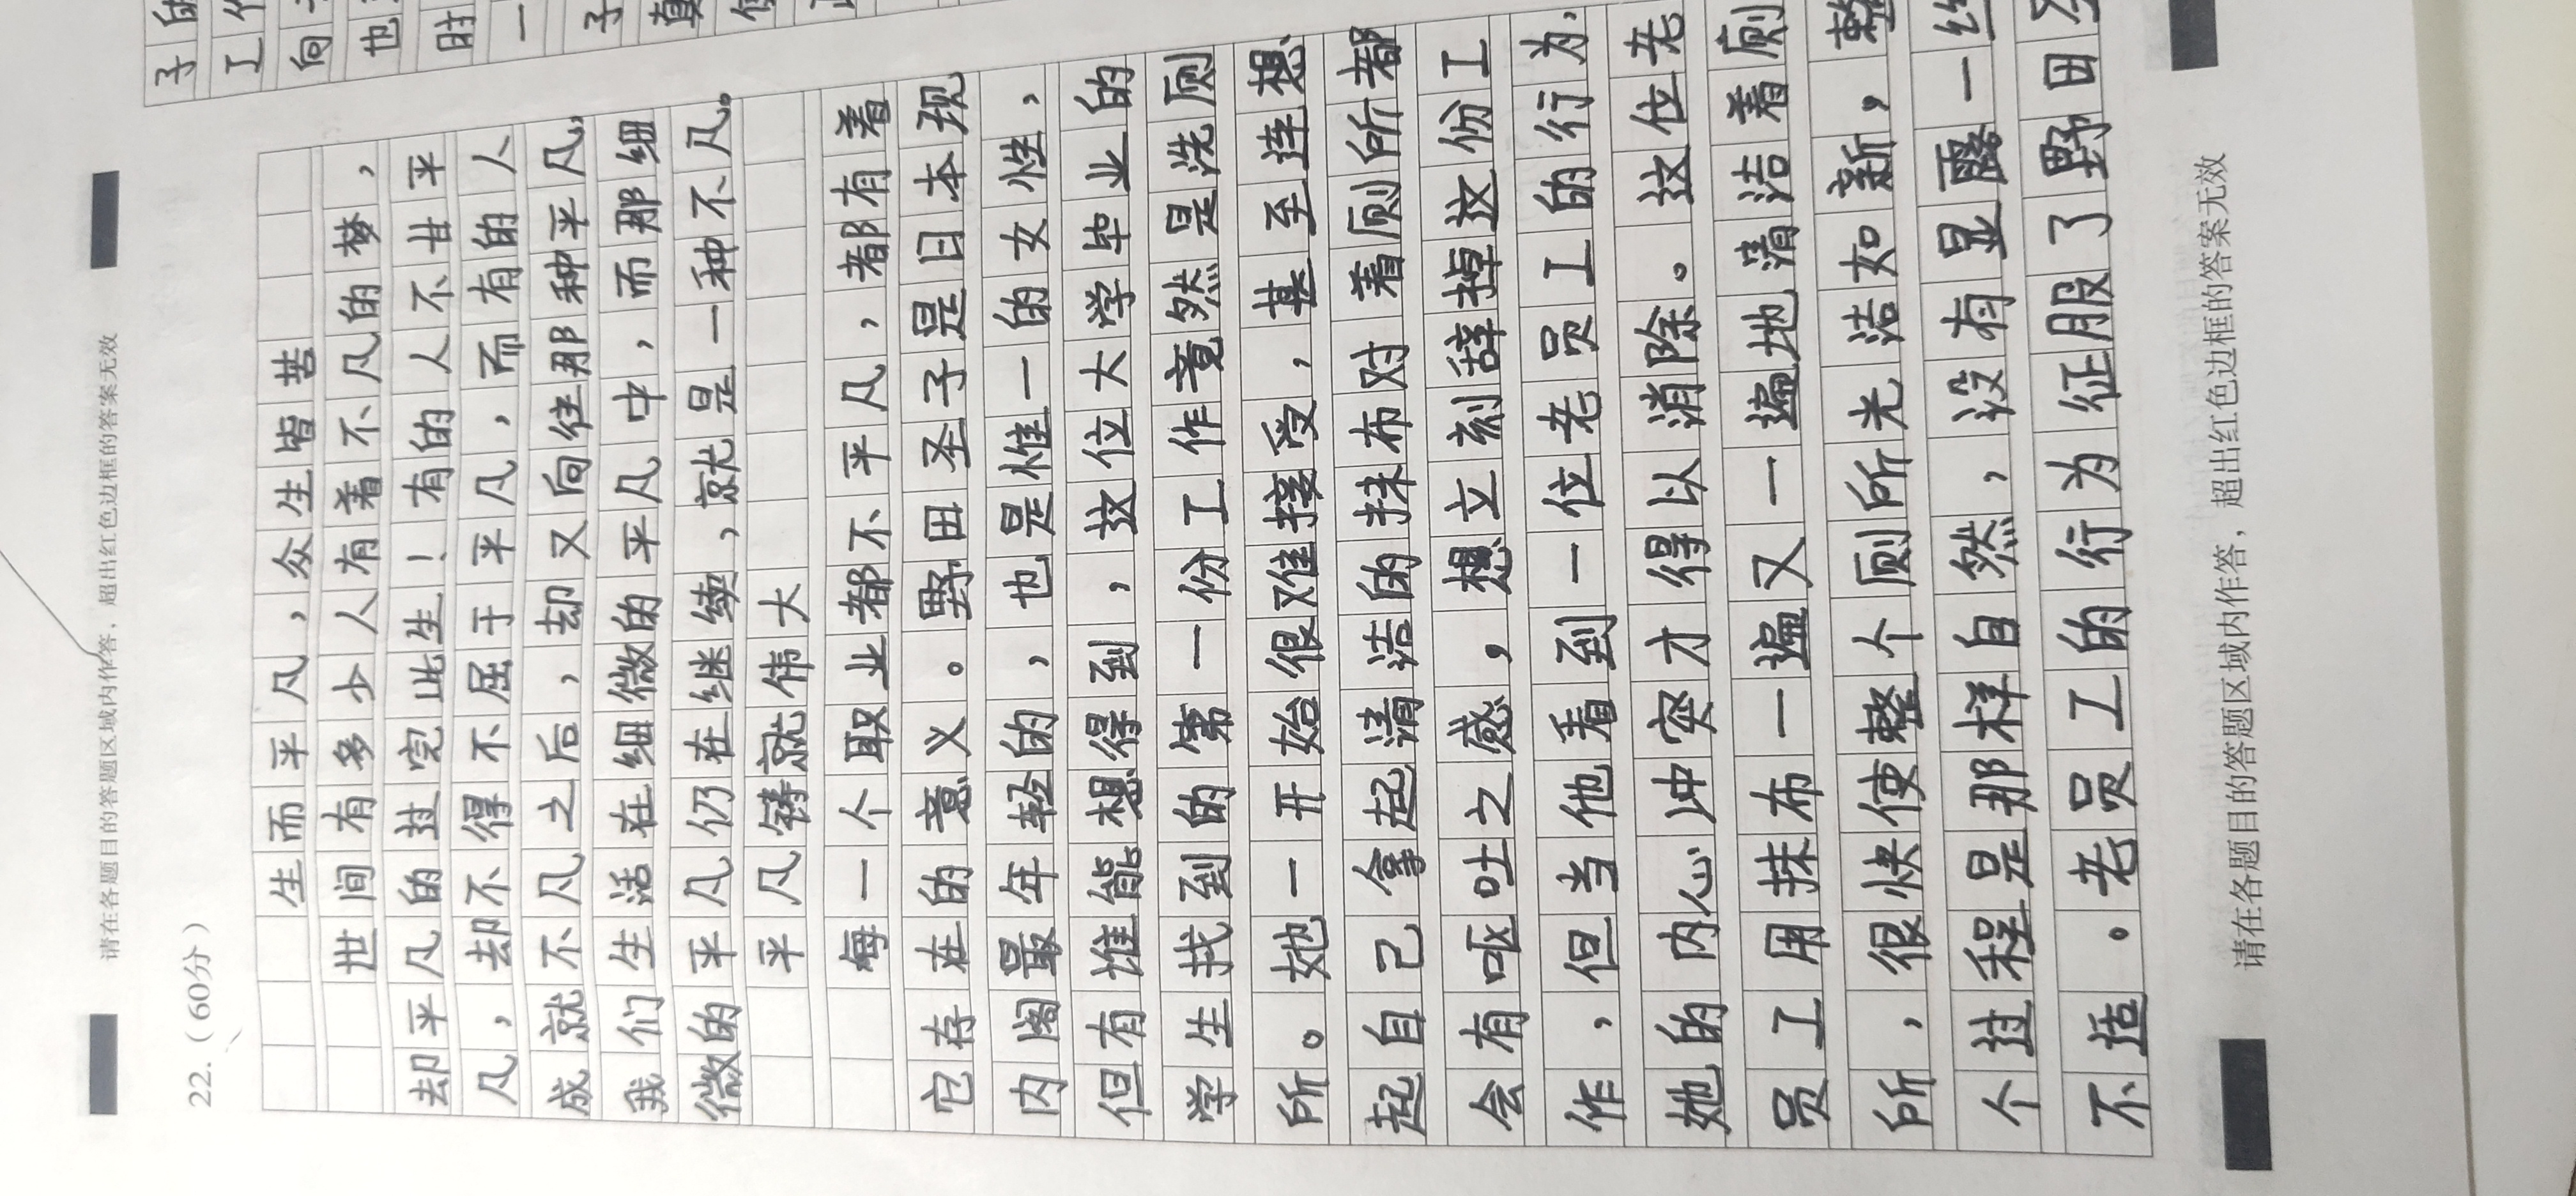 请在各题目的答题区域内作答,超出红色边框的答案无效
22.(60分)
生而平凡,众生皆苦
世间有多少人有着不凡的梦,
却平凡的过完此生!有的人不甘平
凡,却不得不屈于平凡,而有的人
成就不凡之后,却又向往那种平凡,
我们生活在细微的平凡中,而那细
微的平凡仍在继续,就是一种不凡。
平凡铸就伟大
每一个职业都不平凡,都有着
它存在的意义。野田圣子是日本现
内阁最年轻的,也是惟一的女性,
但有谁能想得到,这位大学毕业的
学生找到的第一份工作竟然是洗厕
所。她一开始很难接受,甚至连想
起自己拿起清洁的抹布对着厕所都
会有呕吐之感,想立刻辞掉这份工
作,但当他看到一位老员工的行为,
她的内心冲突才得以消除。这位老
员工用抹布一遍又一遍地清洁着厕
所,很快使整个厕所光洁如新,整
个过程是那样自然,没有显露一丝
不适。老员工的行为征服了野田圣
请在各题目的答题区域内作答,超出红色边框的答案无效
子的
工作
向
也
时
一
子
真